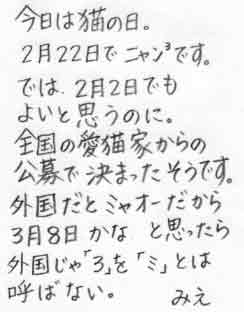 今日は猫の日。
2月22日でニャン³です。
では、2月2日でも
よいと思うのに。
全国の愛猫家からの
公募で決まったそうです。
外国だとミャオーだから
3月8日かな と思ったら
外国じゃ「3」を「ミ」とは
呼ばない。 みえ